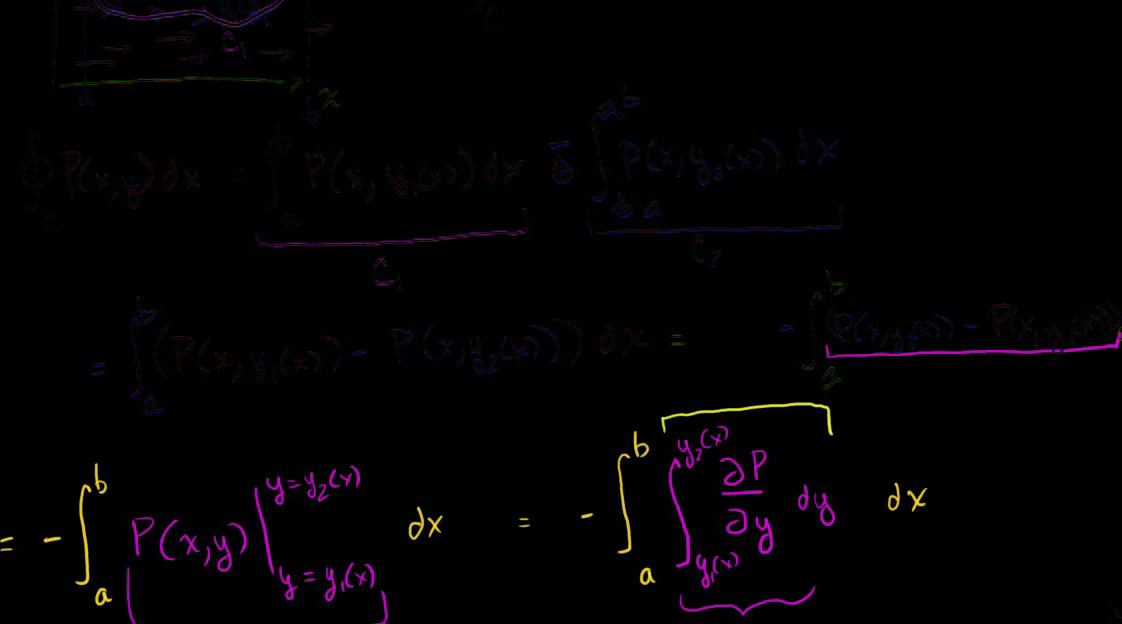 C₁
a b x
∮_C P(x,y)dx = ∫_a^b P(x, y₁(x)) dx ∫_b a^a b P(x, y₂(x)) dx
C₁ C₂
= ∫_a^b (P(x, y₁(x)) - P(x, y₂(x))) dx = - ∫_a^b (P(x, y₂(x)) - P(x, y₁(x)))
= - ∫_a^b P(x,y) |_{y = y₁(x)}^{y = y₂(x)} dx = - ∫_a^b ∫_{y₁(x)}^{y₂(x)} ∂P/∂y dy dx